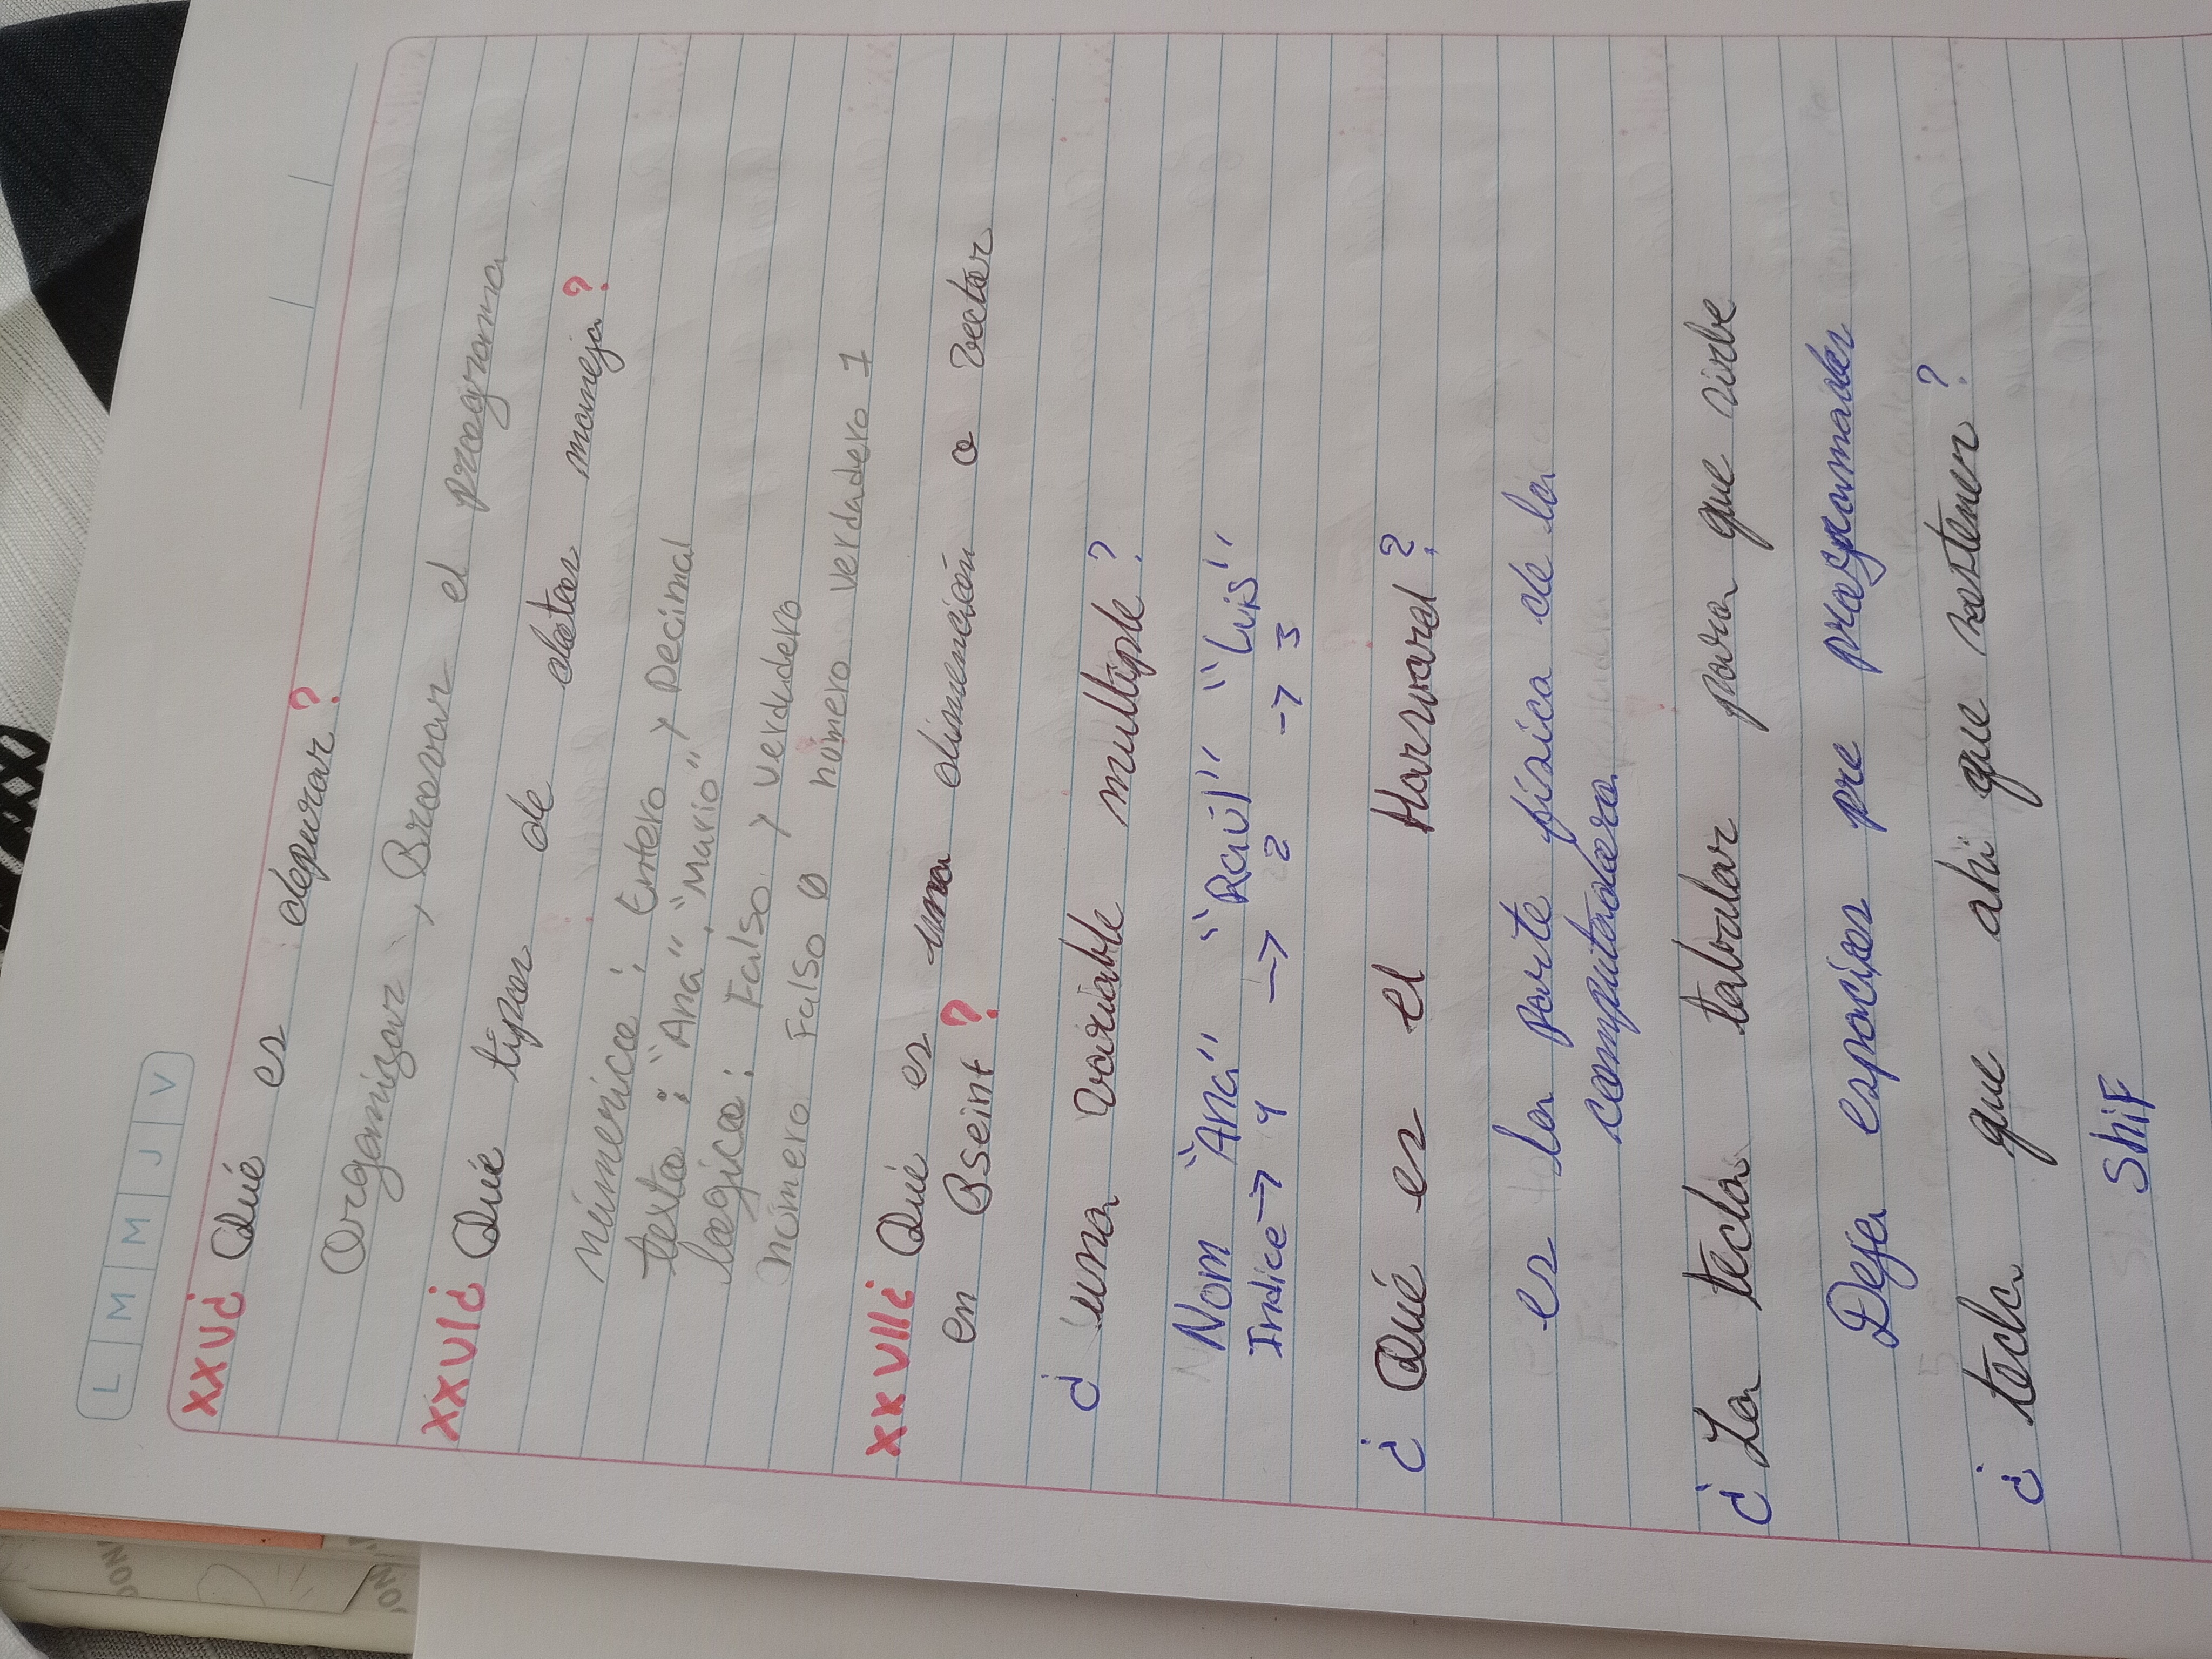 L M M J V
XXV¿ Qué es depurar?
Organizar, Bravar el programa
XXVI¿ Qué tipos de datos maneja?
númerico: Entero y Decimal
texto: "Ana", "Mario"
logico: Falso y verdadero
número Falso 0 número verdadero 1
XXVII¿ Qué es una dimención o vector
en Pseint?
¿ una variable multiple?
Nom "Ana" "Raúl" "Luis"
Indice→ 1 → 2 → 3
¿ Qué es el Harward?
es la parte física de la
computadora
¿ La tecla tabular para que sirbe
Deja espacios pre programados
¿ tecla que ahi que sostener?
Shif